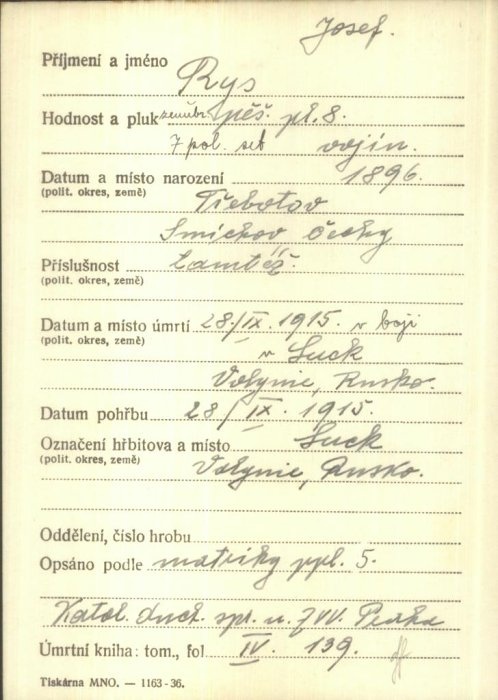 Josef.
Příjmení a jméno Rys
Hodnost a pluk zeměbr. pěš. pl. 8.
7 pol. set vojín.
Datum a místo narození 1896.
(polit. okres, země) Třebotov
Smíchov Čechy
Příslušnost Tamtéž.
(polit. okres, země)
Datum a místo úmrtí 28./IX. 1915. v boji
(polit. okres, země) v Luck
Volynie, Rusko.
Datum pohřbu 28/IX. 1915.
Označení hřbitova a místo Luck
(polit. okres, země) Volynie, Rusko.
Oddělení, číslo hrobu
Opsáno podle matriky ppl. 5.
Katol. duch. spr. u ZVV. Praha
Úmrtní kniha: tom., fol. IV. 139.
Tiskárna MNO. — 1163-36.